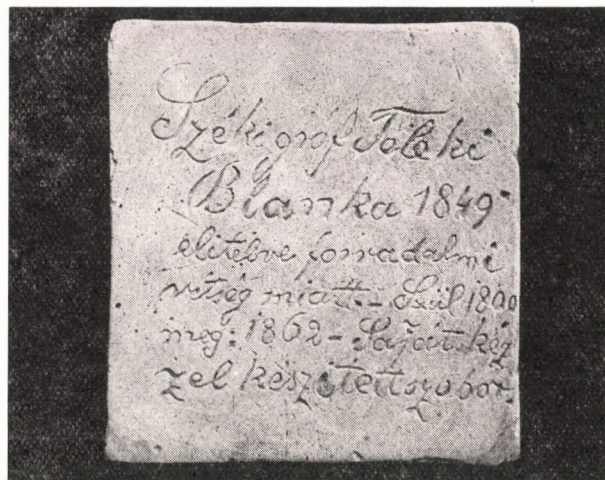 Széki gróf Teleki
Blanka 1849
elitélve forradalmi
vétség miatt - Szül 1800
meg: 1862 - Saját kéz
zel készitett szobor.